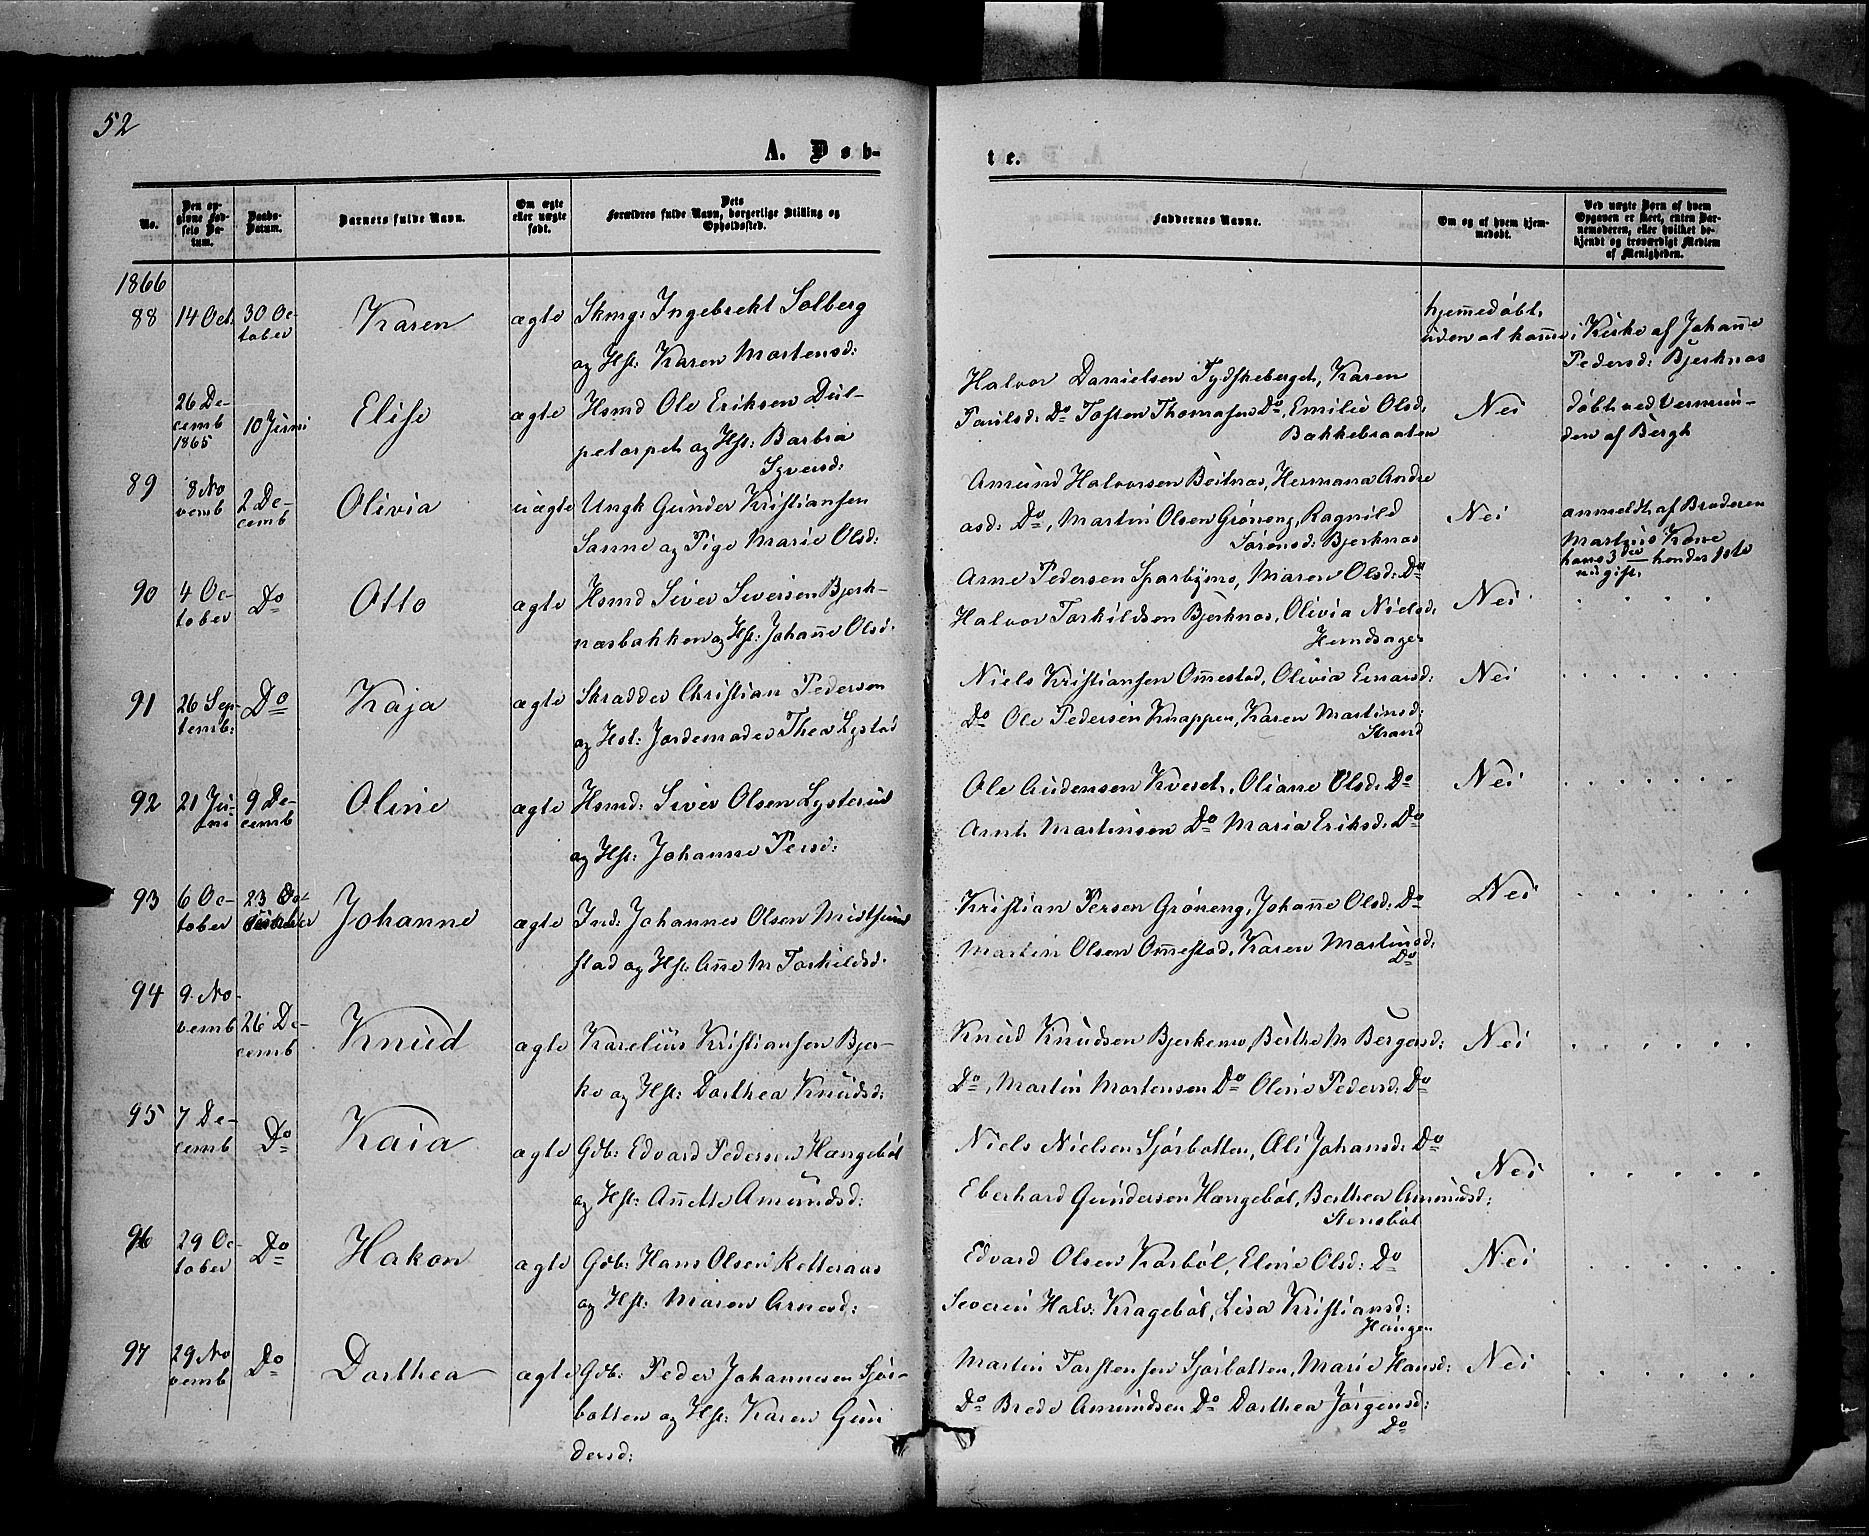 52
A. Døb-
te.
No.
Den op-
givne Fød-
sels Da-
tum.
Daabs-
Datum.
Barnets fulde Navn.
Om ægte
eller uægte
født.
Dets
Forældres fulde Navn, borgerlige Stilling og
Opholdssted.
Faddernes Navne.
Om og af hvem hjem-
medøbt.
Ved uægte Børn af hvem
Opgaven er skeet, enten Bar-
nemoderen, eller hvilket be-
kjendt og troværdigt Medlem
af Menigheden.
1866
88 14 Oct. 30 Oc-
tober Karen ægte Skmg: Ingebrekt Solberg
og Hst: Karen Mortensd:
hjemmedøbt,
uden at komme i Kirke af Johanne
Pedersd: Bjerknæs
26 De-
cemb
1865 10 Juni Elise ægte Hsmd Ole Eriksen Dul-
petorpet og Hst: Barbra
Syversd:
Halvor Danielsen Tydskeberget, Karen
Paulsd: Do Tosten Thomasen Do, Emilie Olsd:
Bakkebraaten
Nei
døbt ved Vermun-
den af Bergh
89 8 No
vemb 2 De-
cemb Olivia uægte Ungk Gunder Kristiansen
Sanne og Pige Marie Olsd:
Amund Halvorsen Beitnæs, Hermana Andre
asd: Do, Martin Olsen Grøneng, Ragnild
Sørensd: Bjerknæs
Nei
anmeldt af Broderen
Martinis Kone
hans 3die hendes 1ste
ugift.
90 4 Oc-
tober Do Otto ægte Hsmd Siver Siversen Bjerk-
næsbakken og Hst: Johanne Olsd:
Arne Pedersen Sparbymo, Maren Olsd: Do
Halvor Torkildsen Bjerknæs, Olivia Nielsd:
Herredsager
Nei
91 26 Sep-
temb: Do Kaja ægte Skrædder Christian Pedersen
og Hst: Jordemoder Thea Lystad
Niels Kristiansen Ommestad, Olivia Einarsd:
Do Ole Pedersen Knappen, Karen Martinsd:
Strand
Nei
92 21 Ju-
ni 9 De-
cemb Oline ægte Hsmd: Siver Olsen Lysterud
og Hst: Johanne Persd:
Ole Audensen Kveset, Oliane Olsd: Do
Arnt Martinsen Do Maria Eriksd: Do
Nei
93 6 Oc-
tober 23 Johanne ægte Ind: Johannes Olsen Midtsund
stad og Hst: Anne M Torkildsd:
Kristian Persen Grøneng, Johanne Olsd: Do
Martin Olsen Ommestad, Karen Martinsd:
Do
Nei
94 9 No-
vemb 26 De-
cemb Knud ægte Karelius Kristiansen Bjer-
ke og Hst: Dorthea Knudsd:
Knud Knudsen Bjerkemo, Berthe M Bergersd:
Do, Martin Mortensen Do Oline Pedersd: Do
Nei
95 7 De-
cemb Do Kaia ægte Gdb: Edvard Pedersen Hængebøl
og Hst: Annette Amundsd:
Niels Nielsen Sjørbotten, Oli Johansd: Do
Eberhard Gundersen Hængebøl, Berthea Amundsd:
Stensbøl
Nei
96 29 Oc-
tober Do Hakon ægte Gdb: Hans Olsen Retteraas
og Hst: Maren Arnesd:
Edvard Olsen Karbøl, Eline Olsd: Do
Severin Halv: Kragebøl, Lisa Kristiansd:
Haugen
Nei
97 29 No
vemb Do Dorthea ægte Gdb: Peder Johannesen Sjør-
botten og Hst: Karen Gun
dersd:
Martin Torstensen Sjørbotten, Marie Hansd:
Do Brede Amundsen Do Dorthea Jørgensd:
Do
Nei